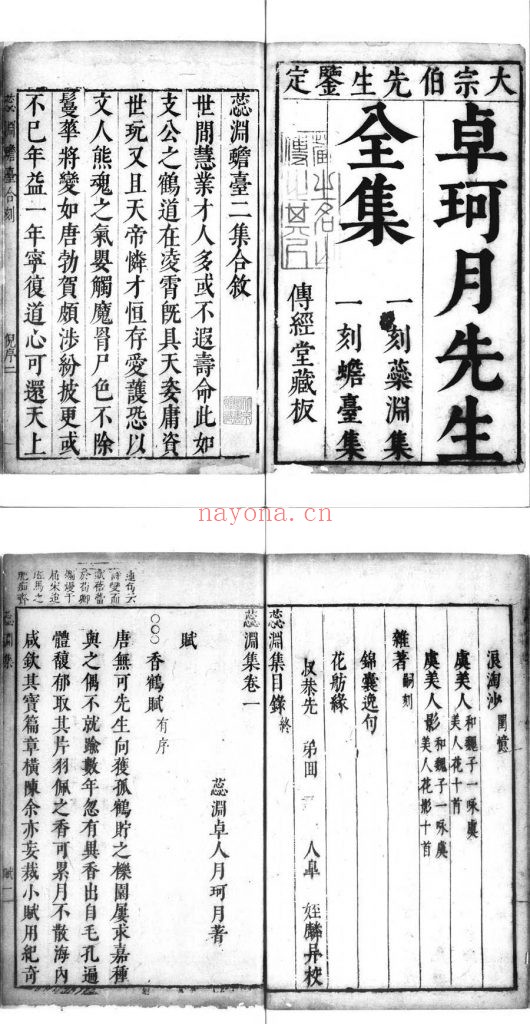 大宗伯先生鑒定
卓珂月先生
全集
一刻蘂淵集
一刻蟾臺集
傳經堂藏板
蕊淵蟾臺二集合敘
世間慧業才人多或不遐壽命此如
支公之鶴道在凌霄旣具天姿庸資
世玩又且天帝憐才恒存愛護恐以
文人熊魂之氣嬰觸魔胷尸色不除
鬘華將變如唐勃賀頗涉紛披更或
不已年益一年寧復道心可還天上
蕊淵蟾臺合刻
倪序二
nayona.cn
浪淘沙 閨憶
虞美人 和魏子一咏虞美人花十首
虞美人影 和魏子一咏虞美人花影十首
雜著 嗣刻
錦囊逸句
花舫緣
叔恭先 弟回 人臯 姪麟异校
蕊淵集目錄 終
蕊淵集卷一
蕊淵卓人月珂月著
賦
○○○香鶴賦 有序
唐無可先生向獲孤鶴貯之櫟園屢求嘉種
與之偶不就踰數年忽有異香出自毛孔遍
體馥郁取其片羽佩之香可累月不散海內
咸欽其寶篇章橫陳余亦妄裁小賦用紀奇
蕊淵集
賦一